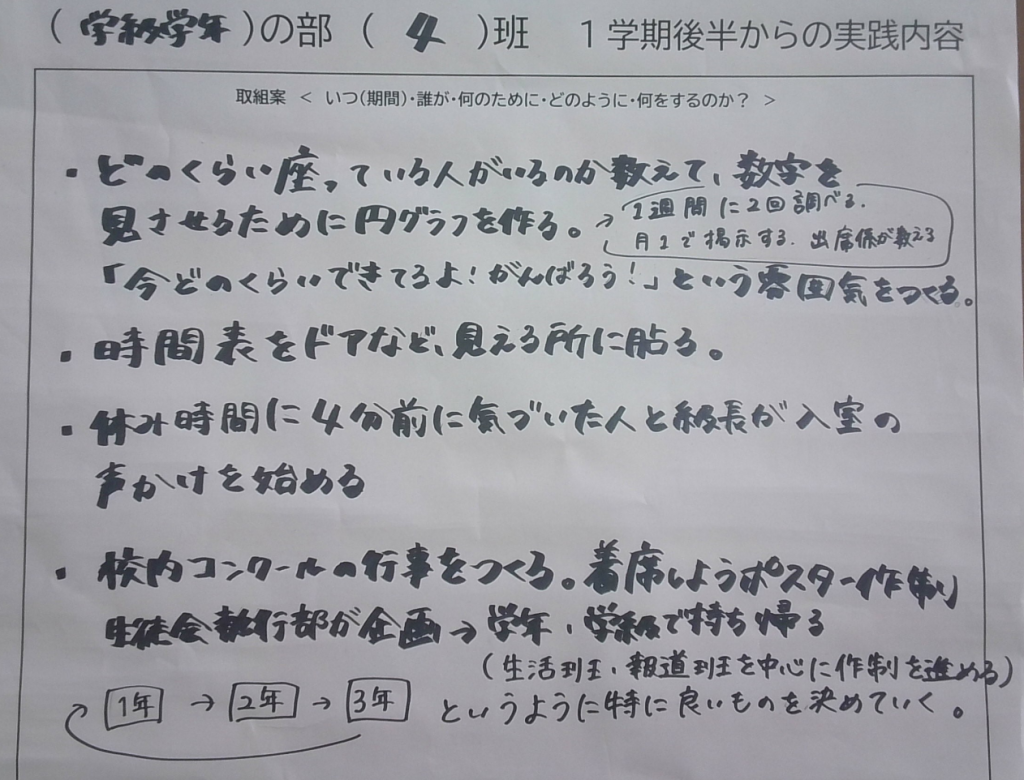 （学級学年）の部（４）班　１学期後半からの実践内容
取組案　＜　いつ(期間)・誰が・何のために・どのように・何をするのか？　＞
・どのくらい座っている人がいるのか数えて、数字を
見させるために円グラフを作る。→
1週間に2回調べる.
月1で掲示する. 出席係が数える
「今どのくらいできてるよ!がんばろう!」という雰囲気をつくる。
・時間表をドアなど、見える所に貼る。
・休み時間に4分前に気づいた人と級長が入室の
声かけを始める
・校内コンクールの行事をつくる。着席しようポスター作制
生徒会執行部が企画→学年・学級で持ち帰る
(生活班・報道班を中心に作制を進める)
1年→2年→3年というように特に良いものを決めていく。